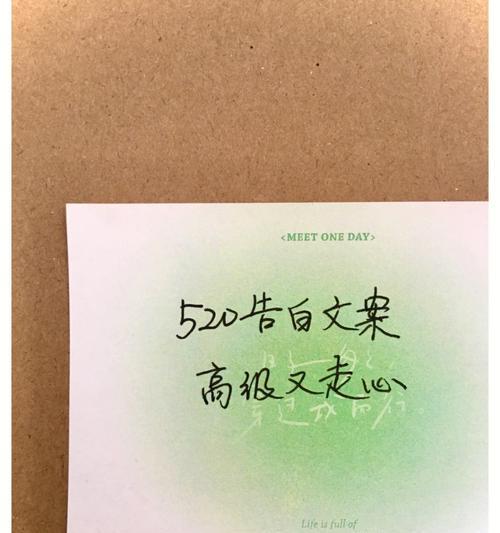 <MEET ONE DAY>
520告白文案
高级又走心
Life is full of